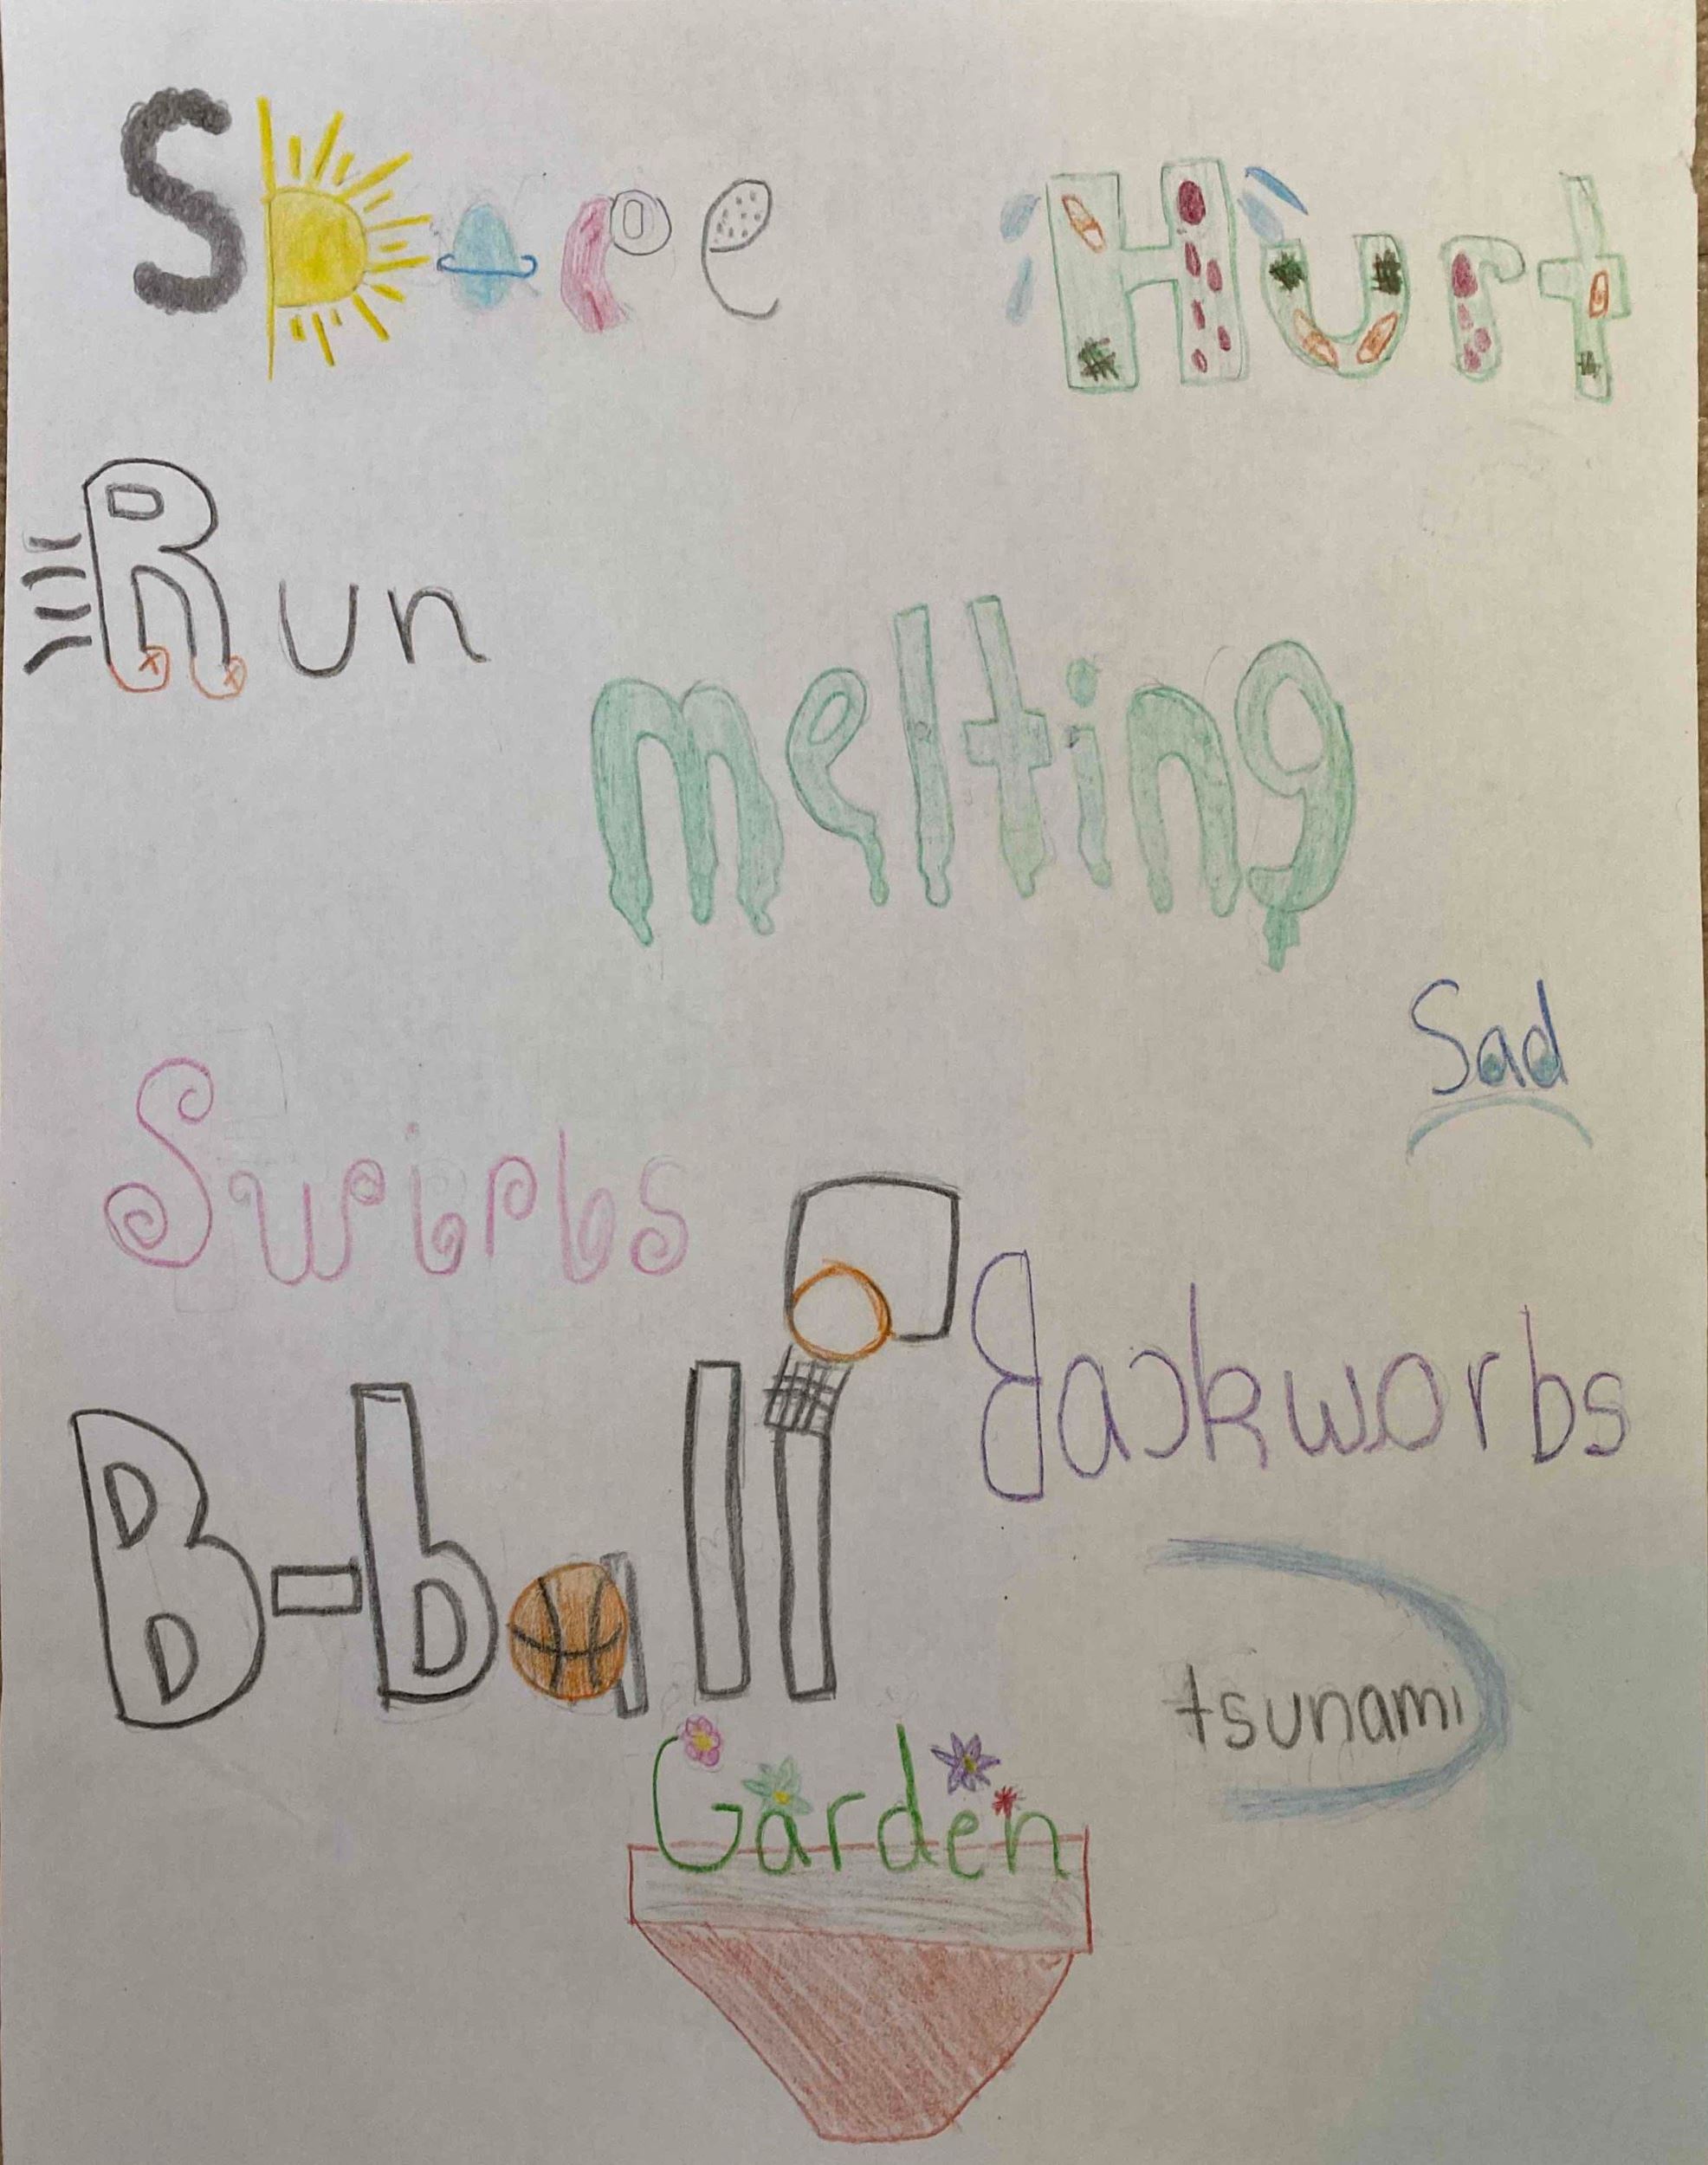 Space
Hurt
Run
melting
Sad
Swirls
Backwords
B-ball
tsunami
Garden